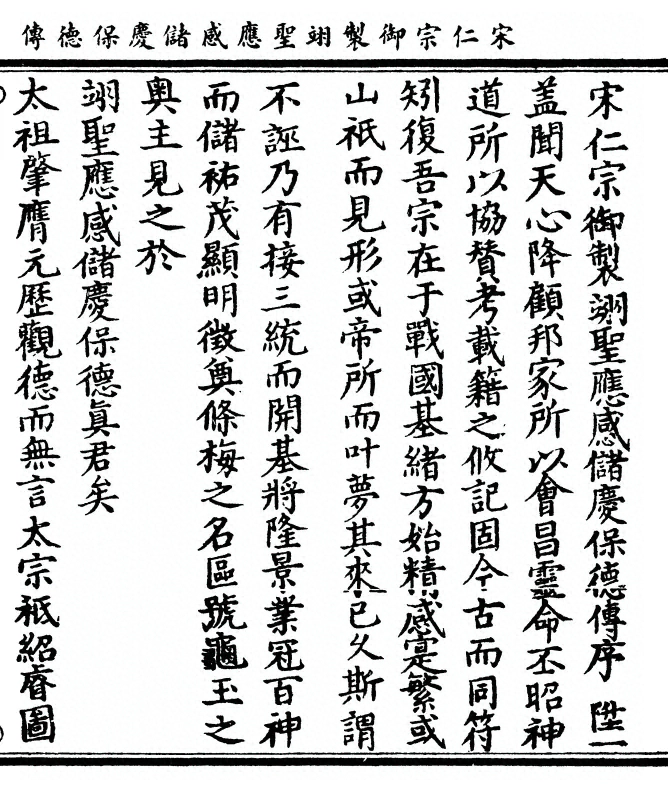 宋仁宗御製翊聖應感儲慶保德傳
宋仁宗御製翊聖應感儲慶保德傳序 陞一
蓋聞天心降顧邦家所以會昌靈命丕昭神
道所以協贊考載籍之攸記固今古而同符
矧復吾宗在于戰國基緒方始精感寔繁或
山祇而見形或帝所而叶夢其來已久斯謂
不誣乃有接三統而開基將隆景業冠百神
而儲祐茂顯明徵奠條梅之名區號龜玉之
奥主見之於
翊聖應感儲慶保德眞君矣
太祖肇膺元歷觀德而無言太宗祗紹睿圖